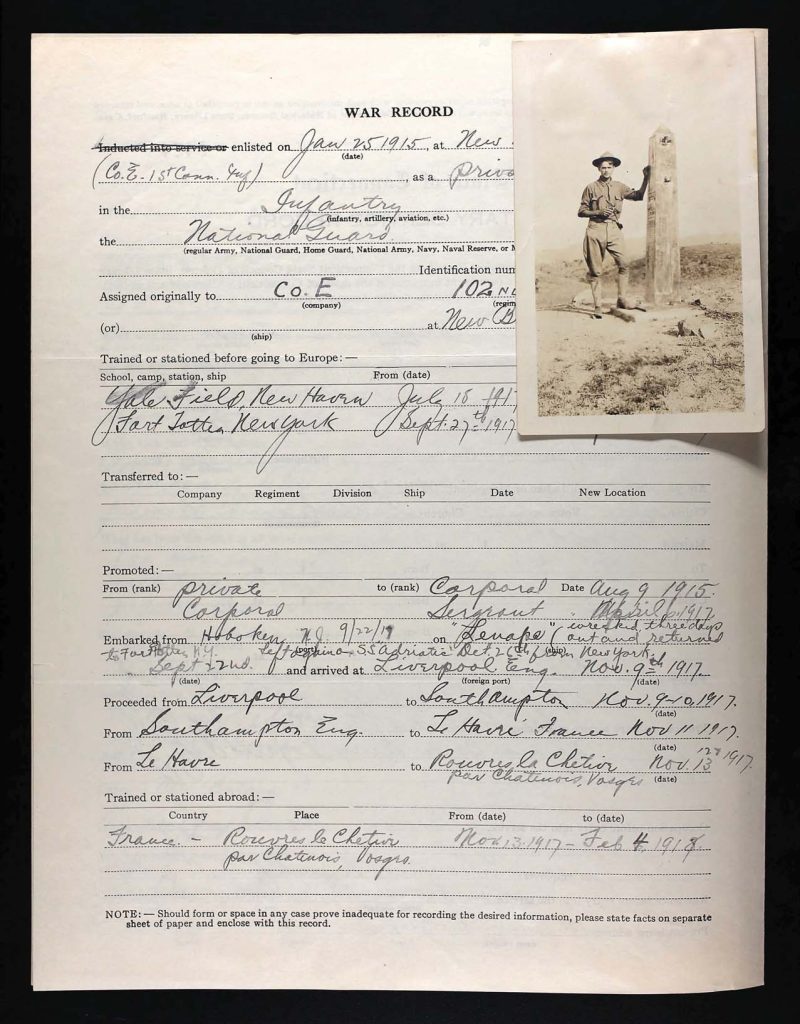 WAR RECORD
Inducted into service or enlisted on Jan 25 1915, at New
(date)
(Co. E. 1st Conn. Inf) , as a priva
in the Infantry
(infantry, artillery, aviation, etc.)
the National Guard
(regular Army, National Guard, Home Guard, National Army, Navy, Naval Reserve, or M
Identification num
Assigned originally to Co. E 102nd
(company) (regim
(or) at New B
(ship)
Trained or stationed before going to Europe: —
School, camp, station, ship From (date)
Yale Field, New Haven July 1917
Fort Totten New York Sept. 27th 1917
Transferred to: —
Company Regiment Division Ship Date New Location
Promoted: —
From (rank) private to (rank) Corporal Date Aug 9 1915.
Corporal Sergeant " April 1917
Embarked from Hoboken N.J. 9/22/17 on "Lenape" (wrecked, three days out and returned
(port) (ship)
to Fort Totten N.Y. Left again on SS Adriatic Oct. 26th from New York.
Sept 22nd. and arrived at Liverpool Eng. Nov. 9th 1917.
(date) (foreign port) (date)
Proceeded from Liverpool to Southampton Nov. 9-10, 1917.
(date)
From Southampton Eng. to Le Havre France Nov 11 1917.
(date)
From Le Havre to Rouvres la Chetive Nov. 13 1917.
par Chatenois, Vosges (date)
Trained or stationed abroad: —
Country Place From (date) to (date)
France. – Rouvres la Chetive Nov. 13. 1917 – Feb 4. 1918.
par Chatenois, Vosges.
NOTE: — Should form or space in any case prove inadequate for recording the desired information, please state facts on separate
sheet of paper and enclose with this record.